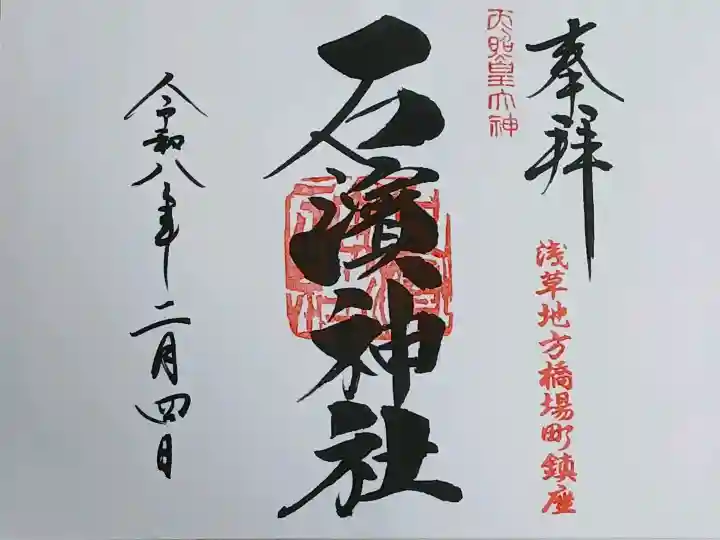 奉拝
天照皇大神
浅草地方橋場町鎮座
石濱神社
令和八年二月四日